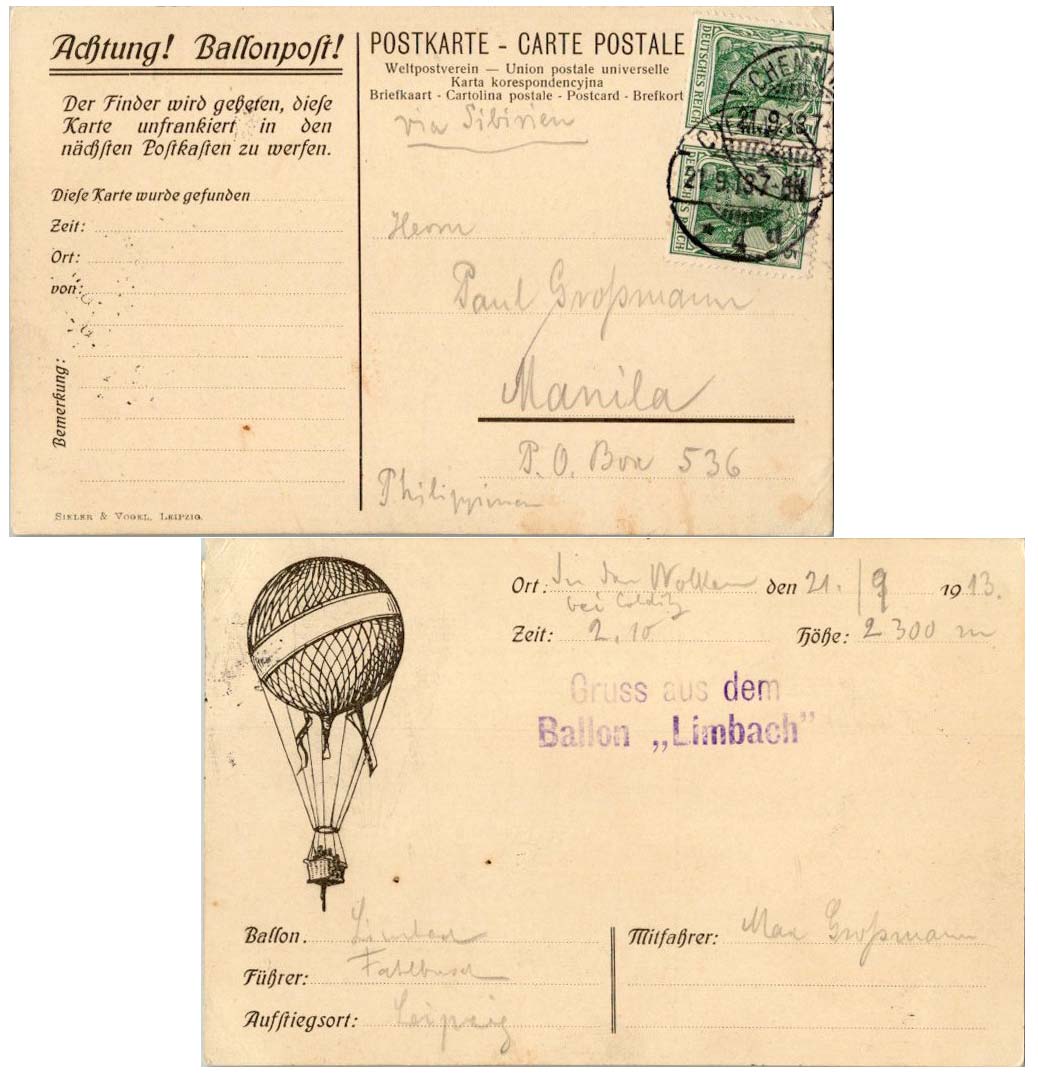 Achtung! Ballonpost!
Der Finder wird gebeten, diese
Karte unfrankiert in den
nächsten Postkasten zu werfen.
Diese Karte wurde gefunden
Zeit:
Ort:
von:
Bemerkung:
SIELER & VOGEL, LEIPZIG.
POSTKARTE - CARTE POSTALE
Weltpostverein — Union postale universelle
Karta korespondencyjna
Briefkaart - Cartolina postale - Postcard - Brefkort
via Sibirien
DEUTSCHES REICH
5
CHEMNI
21.9.13.7-
21.9.13.7-8N
* 4 d
DEUTSCHES REICH
5
Herrn
Paul Großmann
Manila
P. O. Box 536
Philippinen
Ort: In den Wolken den 21. / 9 1913.
bei Colditz
Zeit: 2.10 Höhe: 2300 m
Gruss aus dem
Ballon „Limbach"
Ballon. Limbach
Führer: Fahlbusch
Aufstiegsort: Leipzig
Mitfahrer: Max Großmann